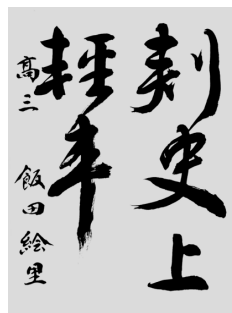 刺史上
輕車
高三 飯田絵里